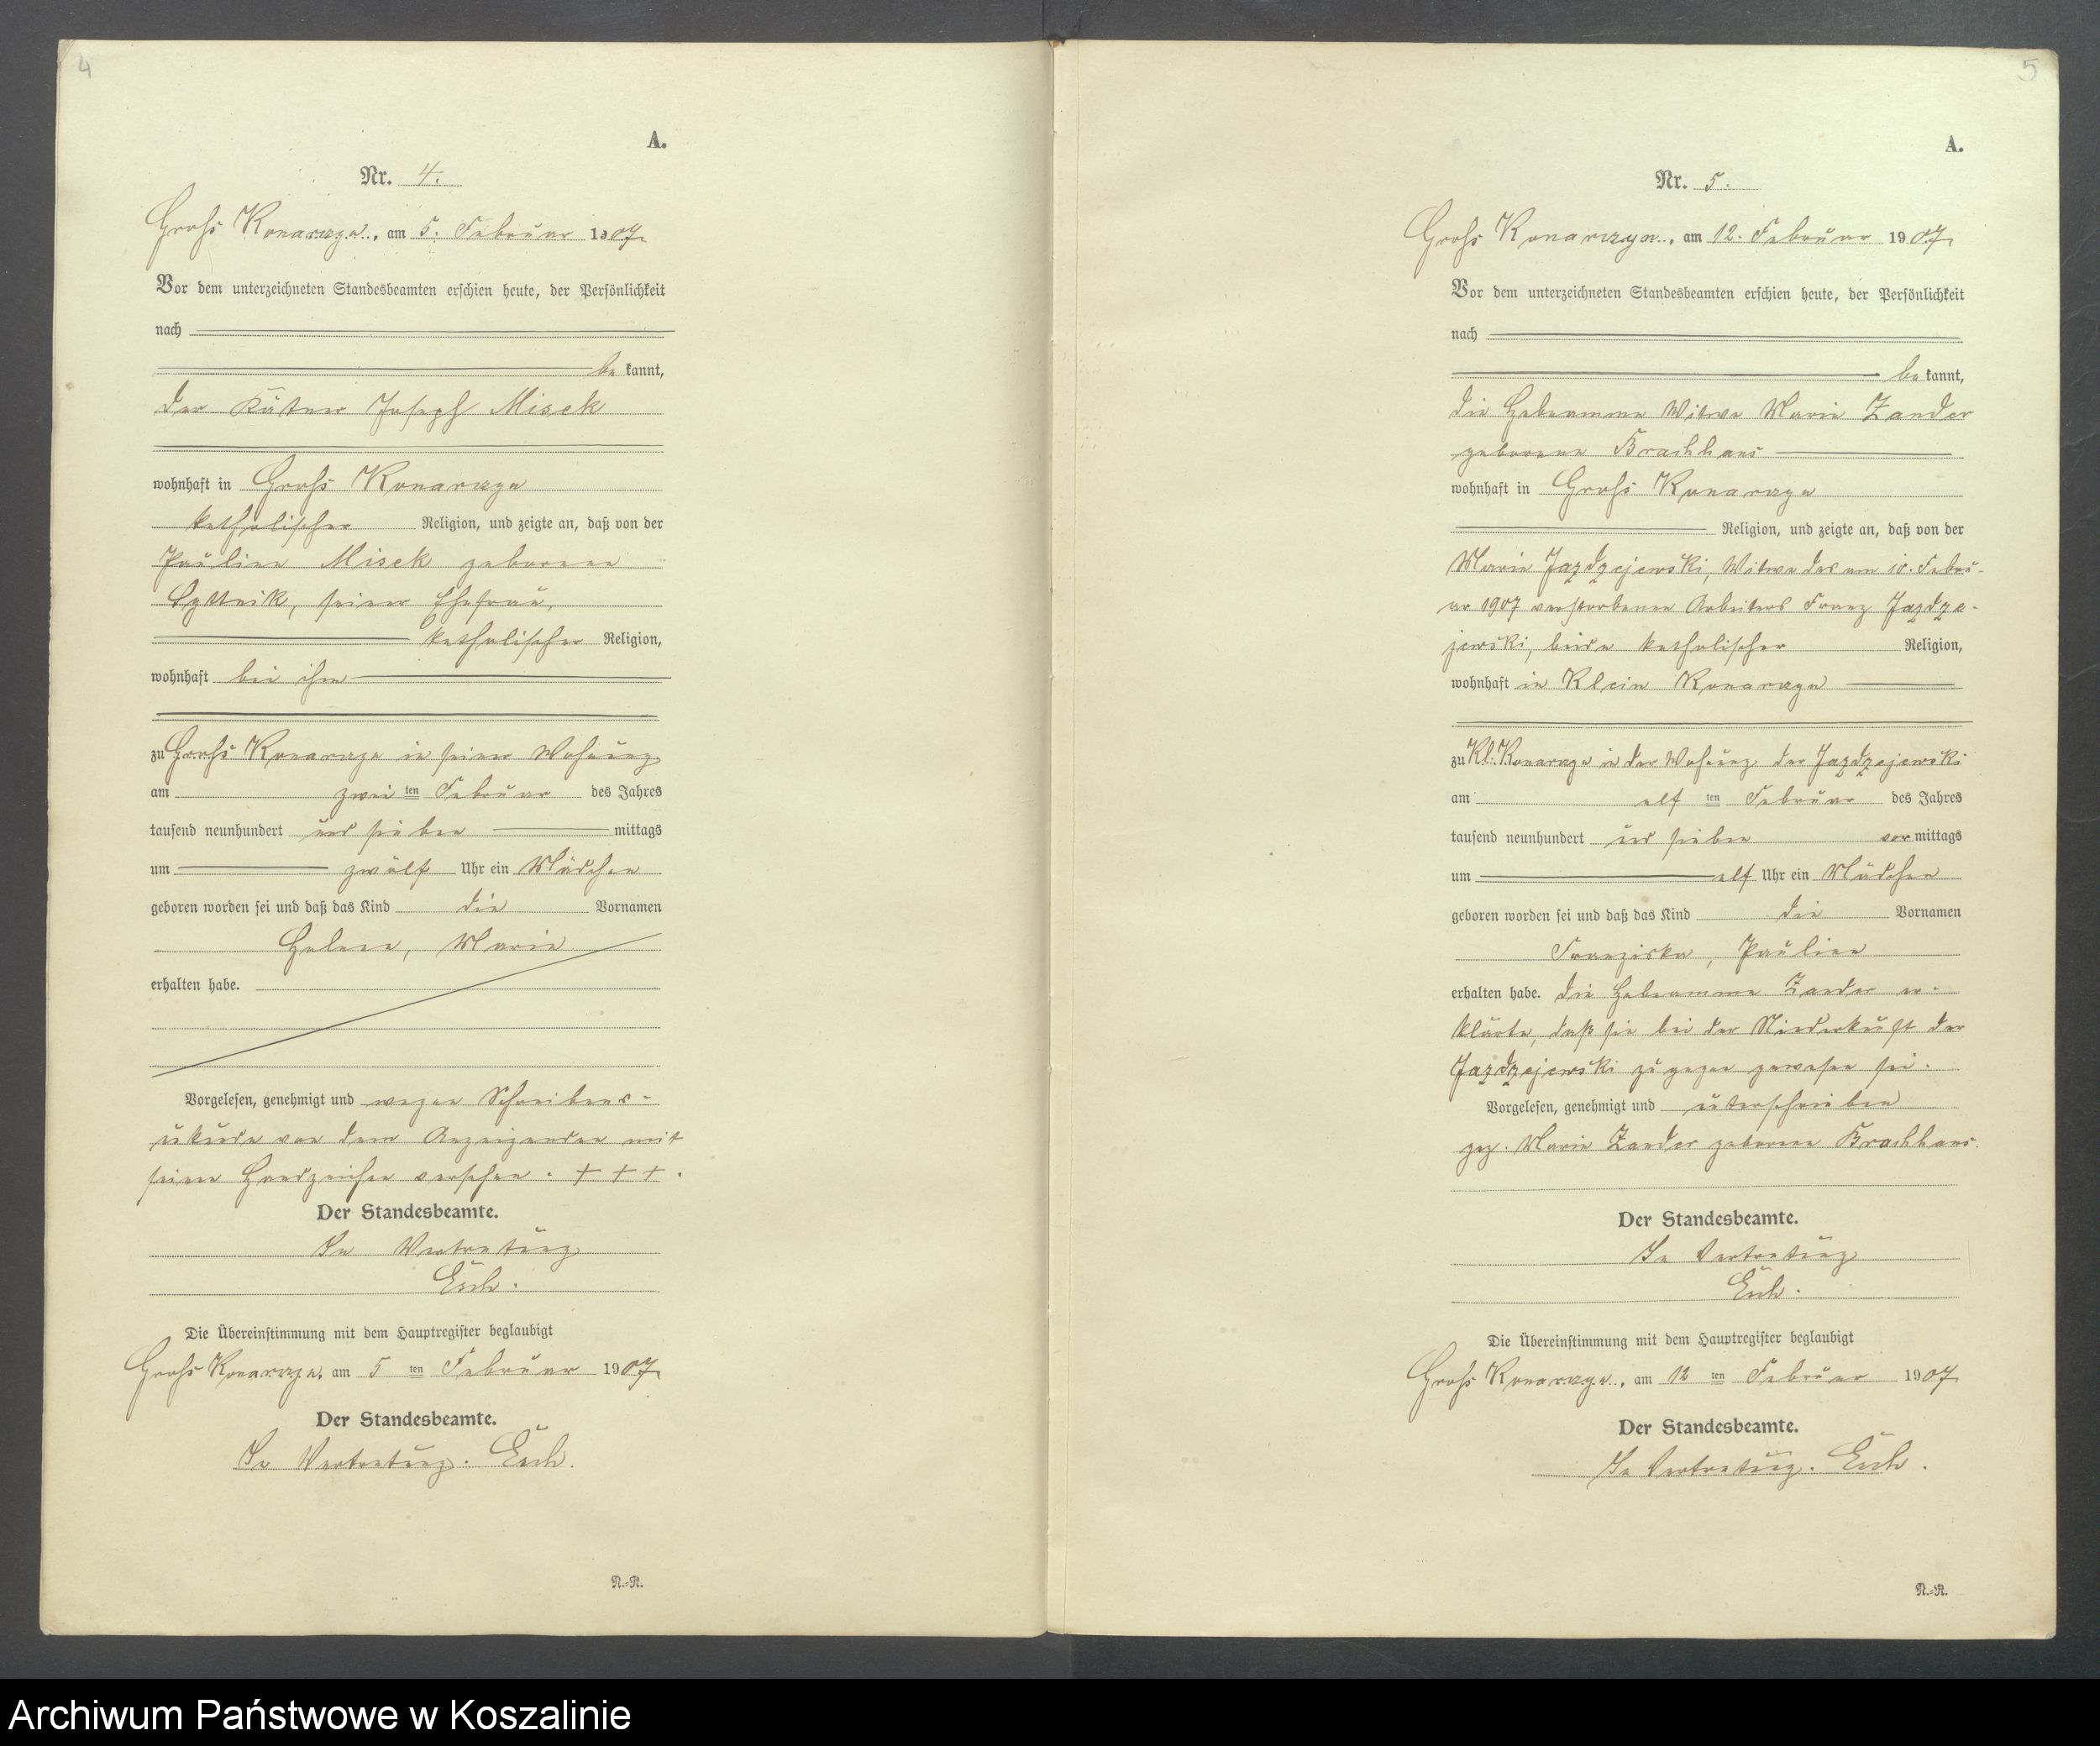 4
A.
Nr. 4.
Groß Konarczyn, am 5. Februar 1907
Vor dem unterzeichneten Standesbeamten erschien heute, der Persönlichkeit
nach
be kannt,
der Kätner Joseph Misek
wohnhaft in Groß Konarczyn
katholischer Religion, und zeigte an, daß von der
Pauline Misek geborene
seiner Ehefrau,
katholischer Religion,
wohnhaft bei ihm
zu Groß Konarczyn in seiner Wohnung
am zwei ten Februar des Jahres
tausend neunhundert und sieben mittags
um zwölf Uhr ein Mädchen
geboren worden sei und daß das Kind die Vornamen
Helene, Marie
erhalten habe.
Vorgelesen, genehmigt und wegen Schreibens-
unkunde von dem Anzeigenden mit
seinem Handzeichen versehen. + + + .
Der Standesbeamte.
In Vertretung
Esch.
Die Übereinstimmung mit dem Hauptregister beglaubigt
Groß Konarczyn, am 5 ten Februar 1907
Der Standesbeamte.
In Vertretung. Esch.
N.=R.
5
A.
Nr. 5.
Groß Konarczyn, am 12. Februar 1907
Vor dem unterzeichneten Standesbeamten erschien heute, der Persönlichkeit
nach
be kannt,
die Hebamme Witwe Marie Zander
geborene Brachhaus
wohnhaft in Groß Konarczyn
Religion, und zeigte an, daß von der
Marie Jazdzejewski, Witwe des am 10. Febru-
ar 1907 verstorbenen Arbeiters Franz Jazdze-
jewski, beide katholischer Religion,
wohnhaft in Klein Konarczyn
zu Kl. Konarczyn in der Wohnung der Jazdzejewski
am elf ten Februar des Jahres
tausend neunhundert und sieben vor mittags
um elf Uhr ein Mädchen
geboren worden sei und daß das Kind die Vornamen
Franziska, Pauline
erhalten habe. Die Hebamme Zander er-
klärte, daß sie bei der Niederkunft der
Jazdzejewski zugegen gewesen sei.
Vorgelesen, genehmigt und unterschrieben
gez. Marie Zander geborene Brachhaus.
Der Standesbeamte.
In Vertretung
Esch.
Die Übereinstimmung mit dem Hauptregister beglaubigt
Groß Konarczyn, am 12 ten Februar 1907
Der Standesbeamte.
In Vertretung. Esch.
N.=R.
Archiwum Państwowe w Koszalinie